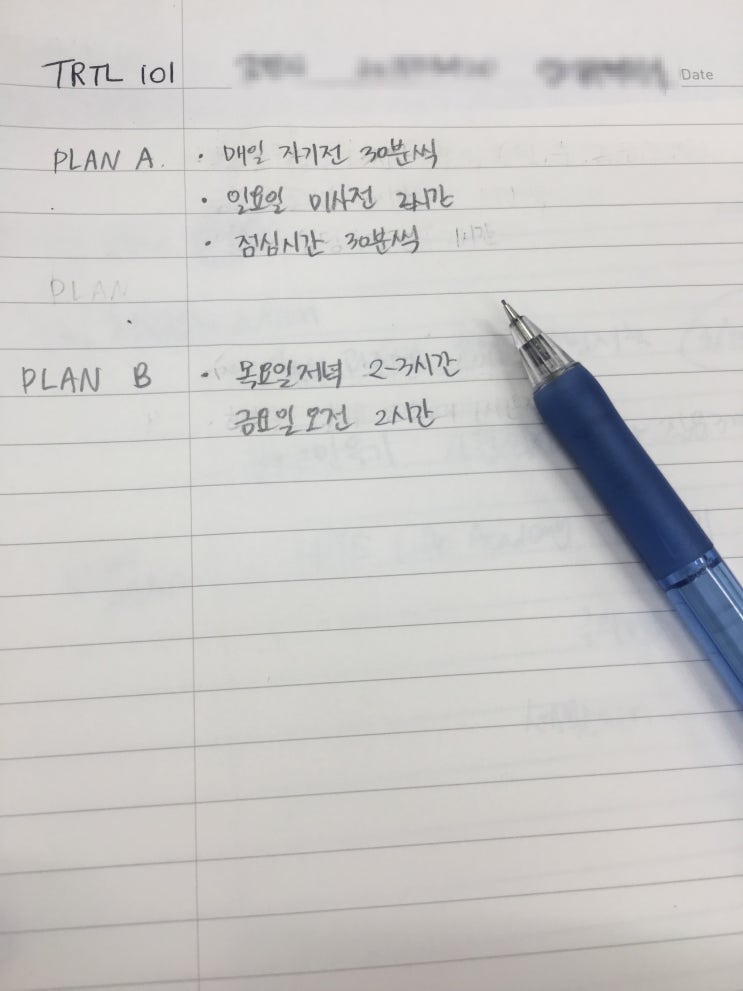 TRTL 101
Date
PLAN A. · 매일 자기전 30분씩
· 일요일 미사전 2시간
· 점심시간 30분씩 1시간
PLAN
PLAN B · 목요일저녁 2-3시간
금요일오전 2시간